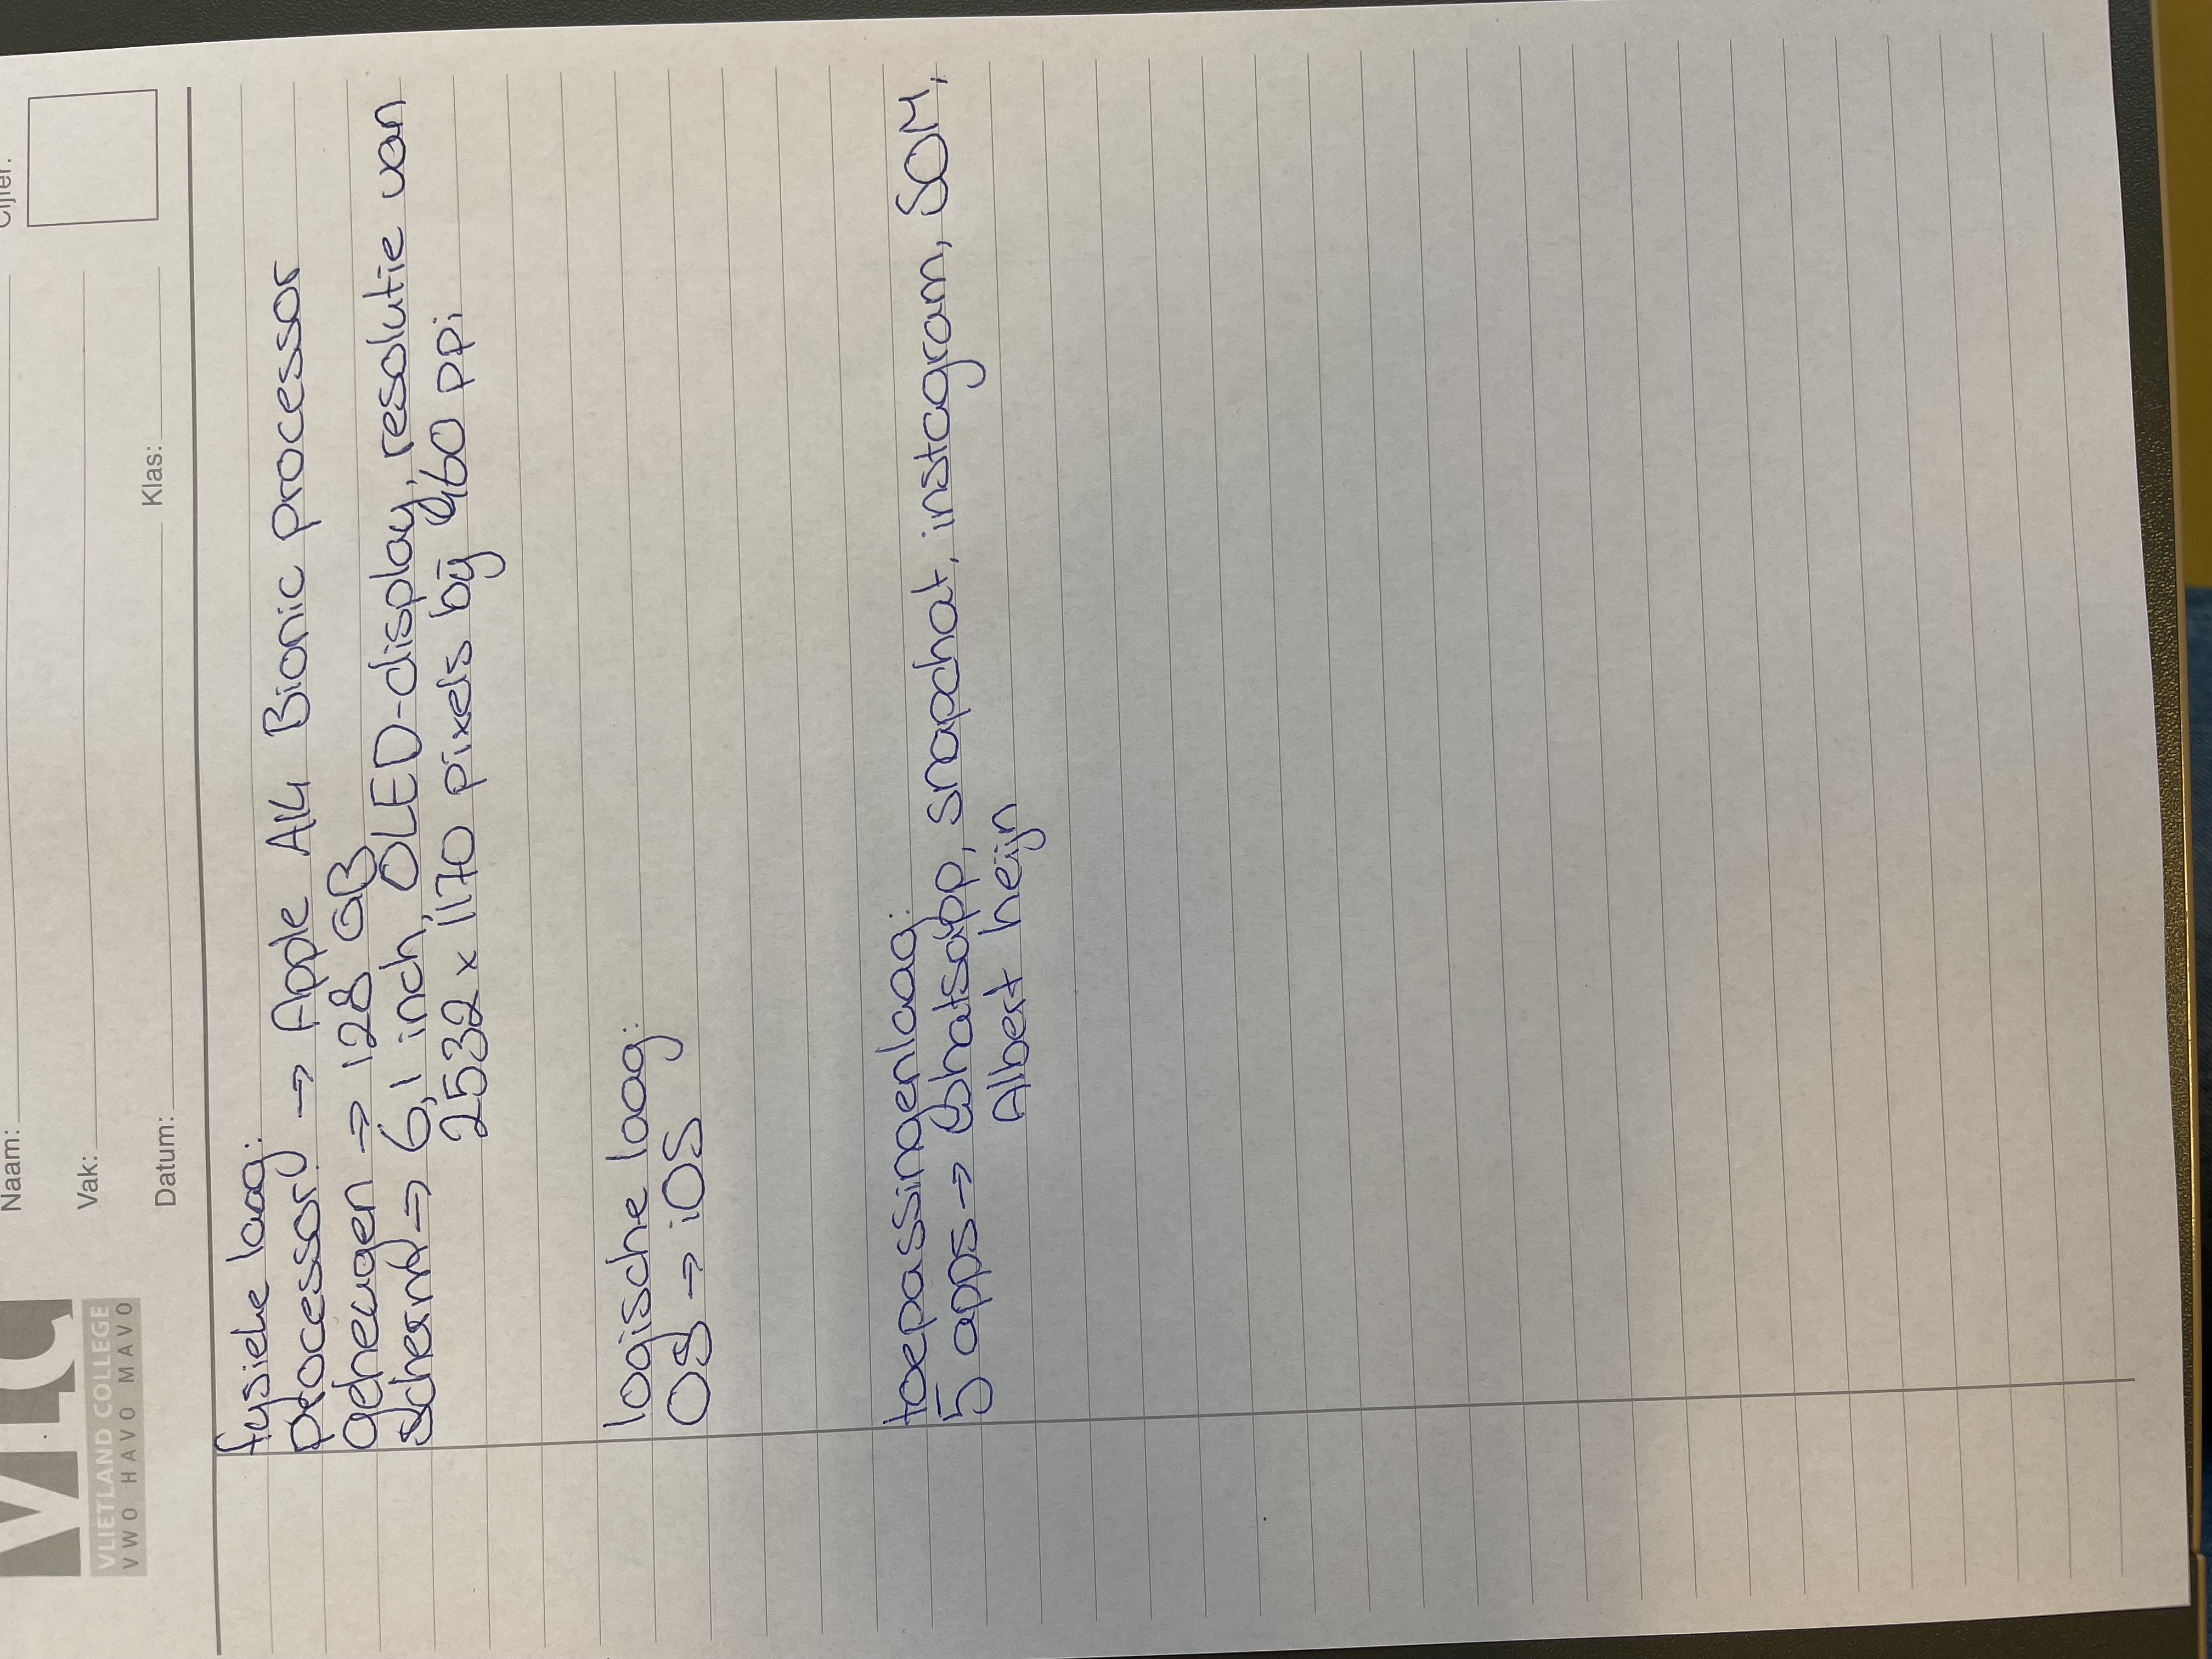 VLC
VLIETLAND COLLEGE
VWO HAVO MAVO
Naam:
Cijfer:
Vak:
Datum: Klas:
fysieke laag:
Processor: → Apple A14 Bionic processor
geheugen → 128 GB
scherm → 6,1 inch, OLED-display, resolutie van
2532 x 1170 pixels bij 460 ppi
logische laag:
OS → iOS
toepassingenlaag:
5 apps → Whatsapp, snapchat, instagram, SOM,
Albert heijn